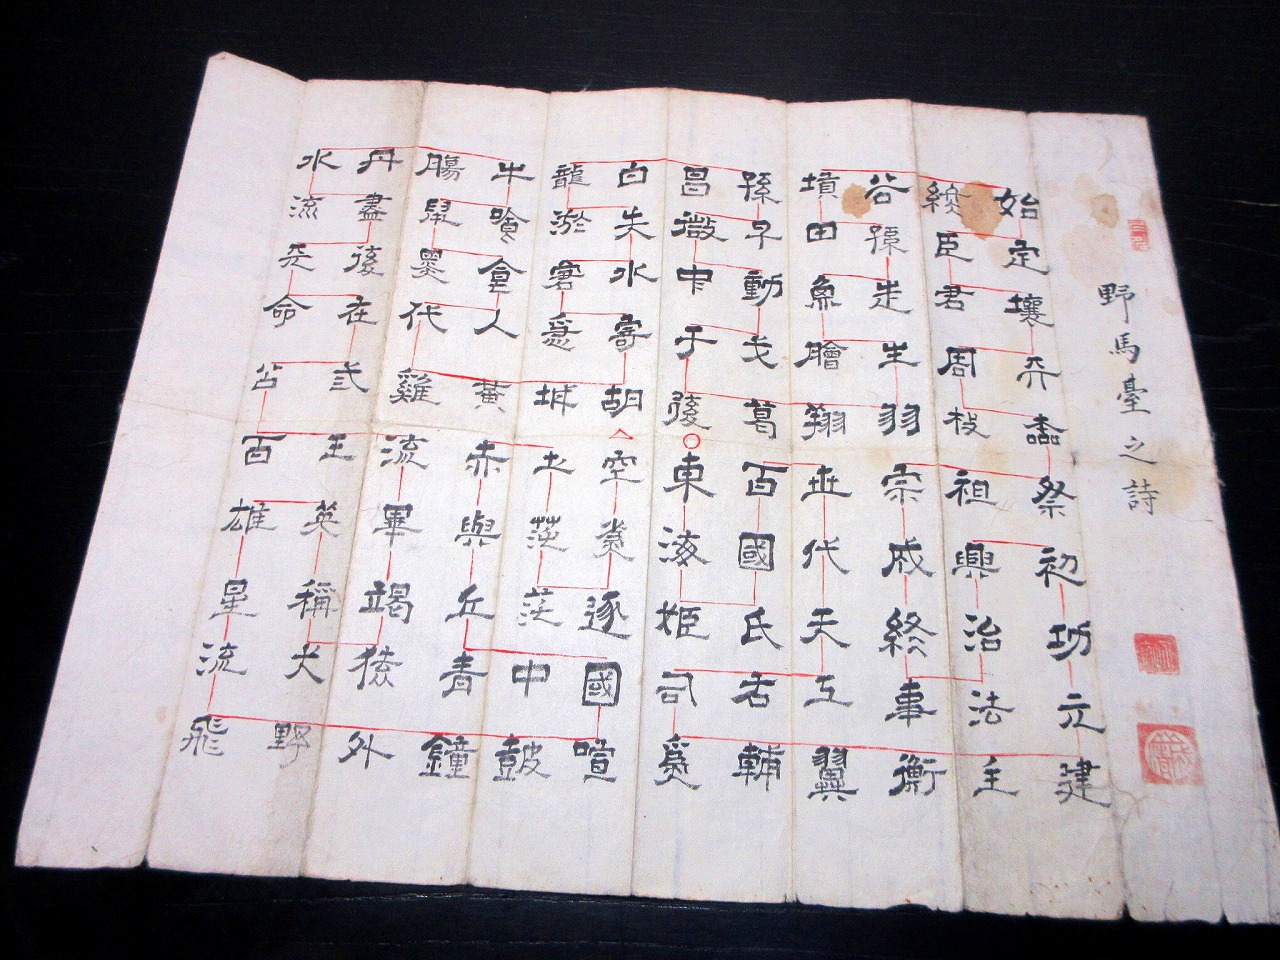 野馬臺之詩
始定壤天本祭初功元建
終臣君周枝祖興治法主
谷孫走生羽宗成終事衡
墳田魚膾翔世代天工翼
孫子動戈葛百國氏右輔
昌微中干後東海姫司爲
白失水寄胡空爲遂國喧
龍游窘急城土茫茫中鼓
牛喰食人黃赤與丘青鐘
腸鼠黑代雞流畢竭猿外
丹盡後在弎王英稱犬野
水流天命公百雄星流飛